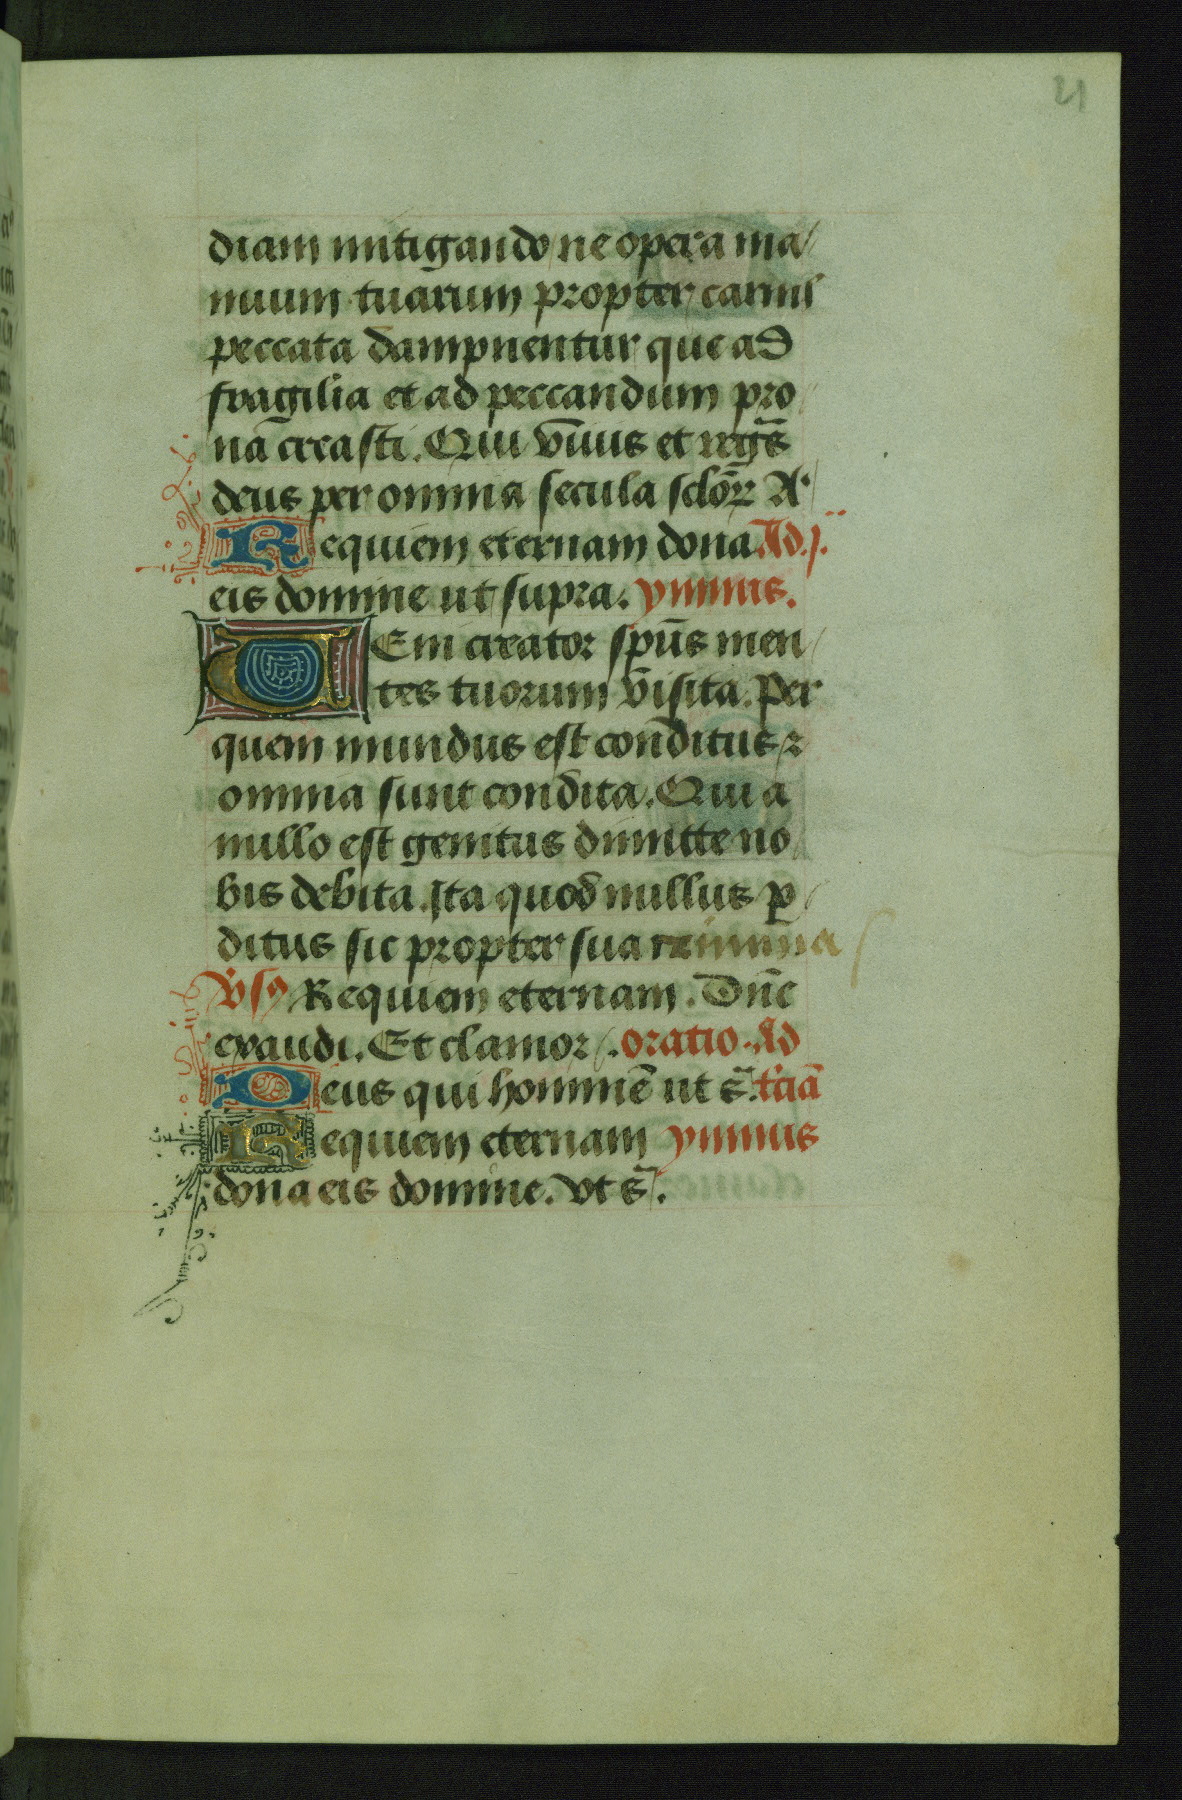 21
diam mitigando ne opera ma/
nuum tuarum propter carnis
peccata dampnentur que ad
fragilia et ad peccandum pro/
nā creasti. Qui viuis et regs̄
deus per omnia secula sclōꝝ A.
Requiem eternam dona. Ad .j.
eis domine ut supra. ymnus.
VEni creator spūs men/
tes tuorum visita. Per
quem mundus est conditus ꝛ
omnia sunt condita. Qui a
nullo est genitus dimitte no/
bis debita. Ita quod nullus ꝑ/
ditus sic propter sua crimina
Vsꝯ Requiem eternam. Dn̄e
exaudi. Et clamor /. oratio. Ad
Deus qui hominē ut s̄. tciā
Requiem eternam ymnus
dona eis domine. vt s̄.